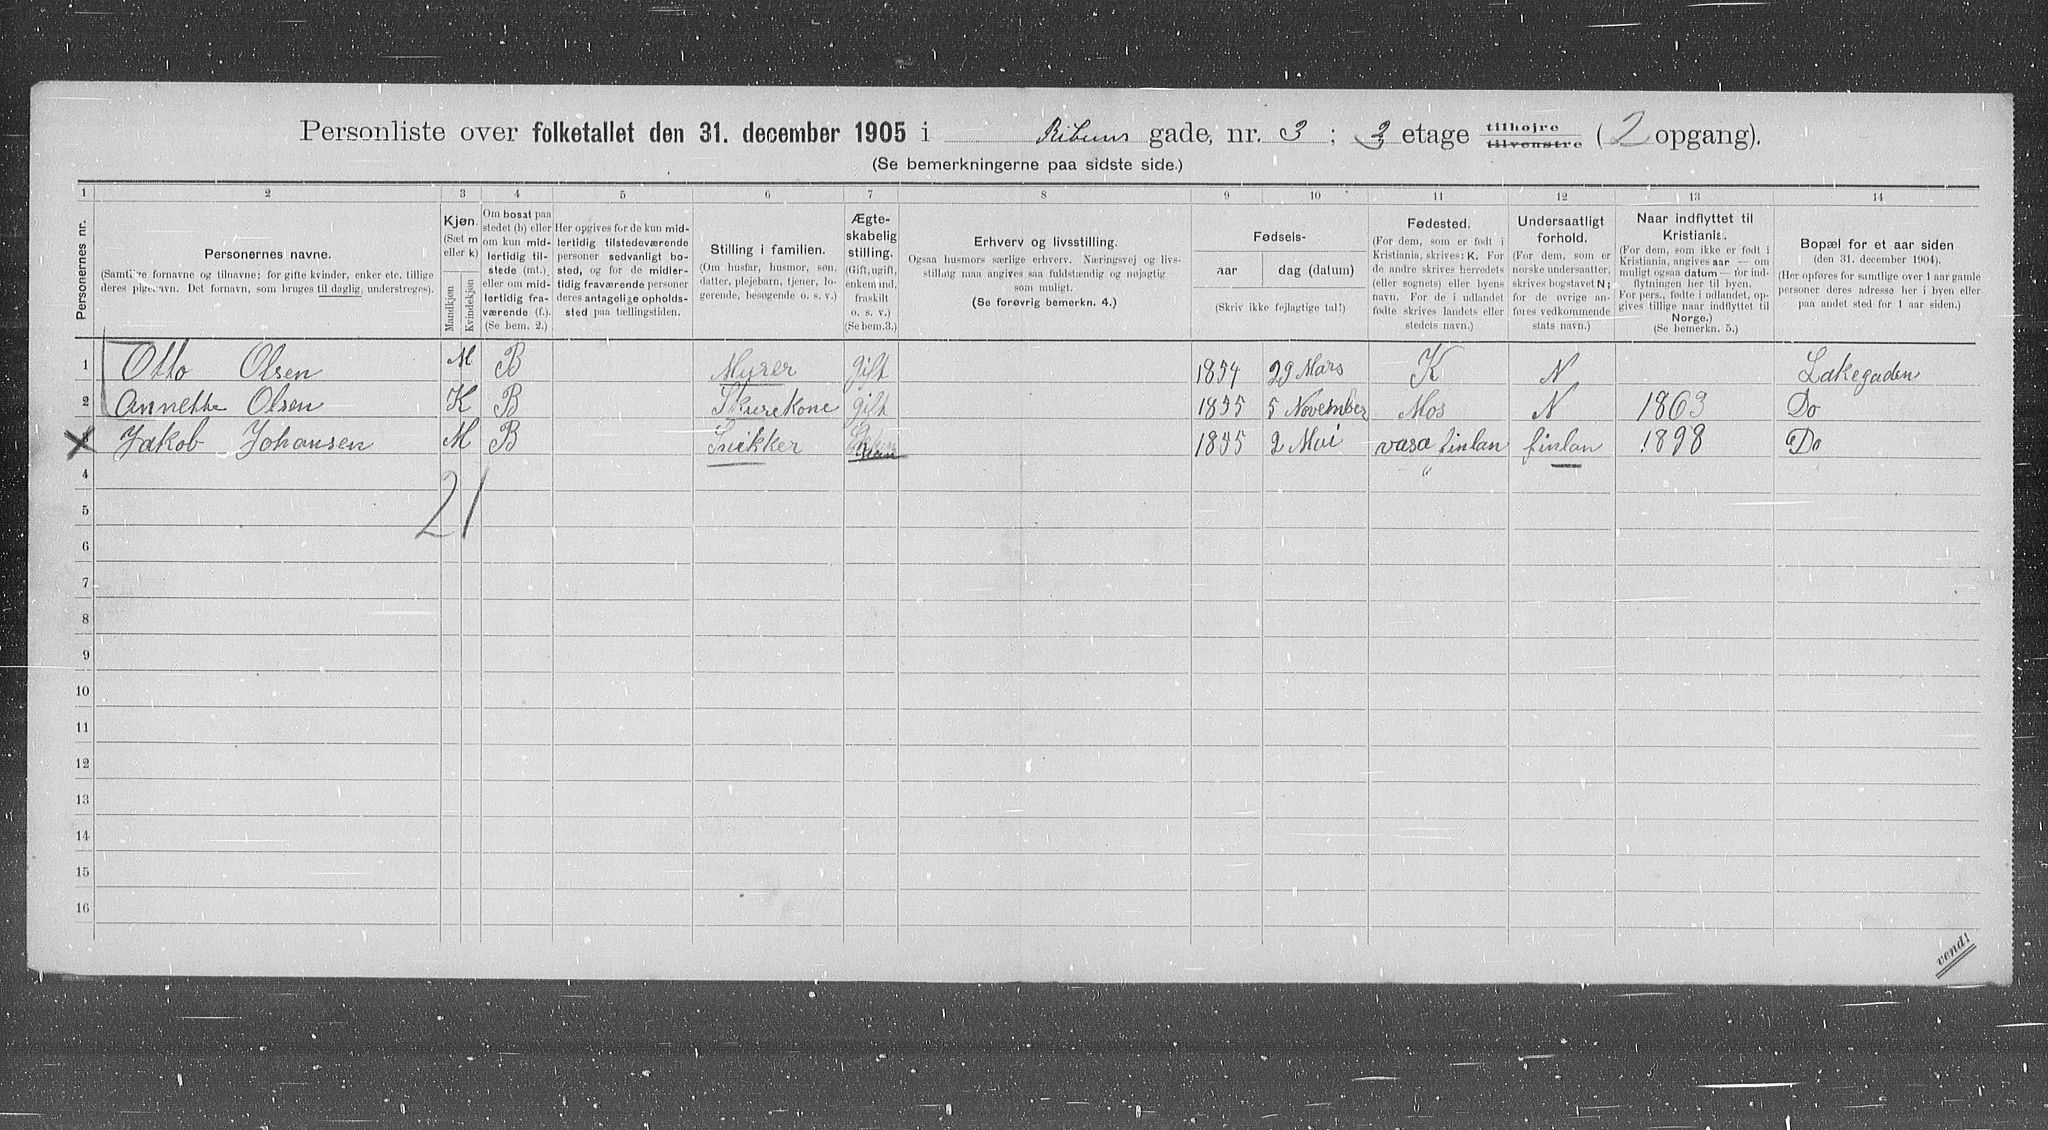 Personliste over folketallet den 31. december 1905 i Ribuns gade, nr. 3 ; 3 etage tilhøjre tilvenstre (2 opgang).
(Se bemerkningerne paa sidste side.)
1 2 3 4 5 6 7 8 9 10 11 12 13 14
Personernes nr.
Personernes navne.
(Samtlige fornavne og tilnavne; for gifte kvinder, enker etc. tillige
deres pigenavn. Det fornavn, som bruges til daglig, understreges).
Kjøn.
(Sæt m
eller k)
Mandkjøn
Kvindekjøn
Om bosat paa
stedet (b) eller
om kun mid-
lertidig til-
stede (mt.)
eller om mid-
lertidig fra-
værende (f.).
(Se bem. 2.)
Her opgives for de kun mid-
lertidig tilstedeværende
personer sedvanligt bo-
sted, og for de midler-
tidig fraværende personer
deres antagelige opholds-
sted paa tællingstiden.
Stilling i familien.
(Om husfar, husmor, søn,
datter, plejebarn, tjener, lo-
gerende, besøgende o. s. v.)
Ægte-
skabelig
stilling.
(Gift, ugift,
enkem. ind,
fraskilt
o. s. v.)
(Se bem.3.)
Erhverv og livsstilling.
Ogsaa husmors særlige erhverv. Næringsvej og livs-
stilling maa angives saa fuldstændig og nøjagtig
som muligt.
(Se forøvrig bemerkn. 4.)
Fødsels-
aar dag (datum)
(Skriv ikke fejlagtige tal!)
Fødested.
(For dem, som er født i
Kristiania, skrives: K. For
de andre skrives herredets
(eller sognets) eller byens
navn. For de i udlandet
fødte skrives landets eller
stedets navn.)
Undersaatligt
forhold.
(For dem, som er
norske undersaatter,
skrives bogstavet N;
for de øvrige an-
føres vedkommende
stats navn.)
Naar indflyttet til
Kristiania.
(For dem, som ikke er født i
Kristiania, angives aar — om
muligt ogsaa datum — for ind-
flytningen her til byen.
For pers., fødte i udlandet, op-
gives tillige naar indflyttet til
Norge.)
(Se bemerkn. 5.)
Bopæl for et aar siden
(den 31. december 1904).
(Her opføres for samtlige over 1 aar gamle
personer deres adresse her i byen eller
paa andet sted for 1 aar siden.)
1 Otto Olsen M B Murer gift 1854 29 Mars K N Lakegaden
2 Annette Olsen K B Skurekone gift 1855 5 November Mos N 1863 Do
3 Jakob Johansen M B Snikker 1855 2 Mai vasa finlan finlan 1898 Do
4
21
5
6
7
8
9
10
11
12
13
14
15
16
vend!